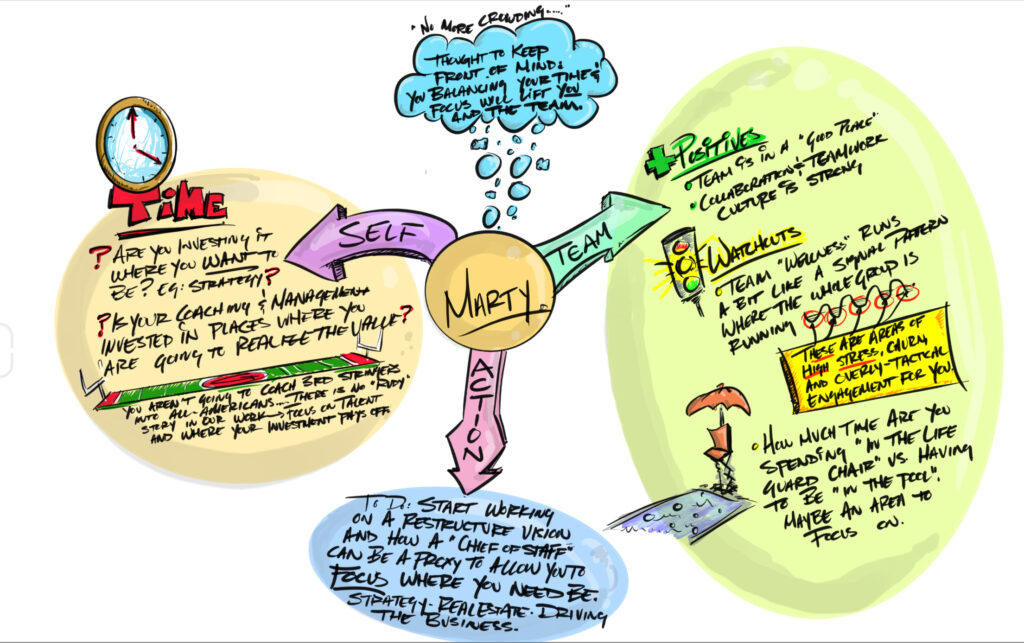 "No More Crowding....."
Thought to keep
front of mind:
You balancing your time &
focus will lift you
and the team.
Time
? Are you investing it
where you want to
be? eg: strategy?
? Is your coaching & management
invested in places where you
are going to realize the value?
You aren't going to coach 3rd stringers
into all-Americans... There is no "Rudy"
story in our work → focus on talent
and where your investment pays off
Self
Marty
Team
Action
Positives
• Team is in a "good place"
• Collaboration & teamwork
culture is strong
Watchouts
• Team "wellness" runs
a bit like a signal pattern
where the whole group is
running
These are areas of
high stress, churn,
and overly-tactical
engagement for you.
• How much time are you
spending "in the life
guard chair" vs. having
to be "in the pool".
Maybe an area to
focus on.
To Do: Start working
on a restructure vision
and how a "chief of staff"
can be a proxy to allow you to
focus where you need be.
Strategy - Real estate - Driving
the business.